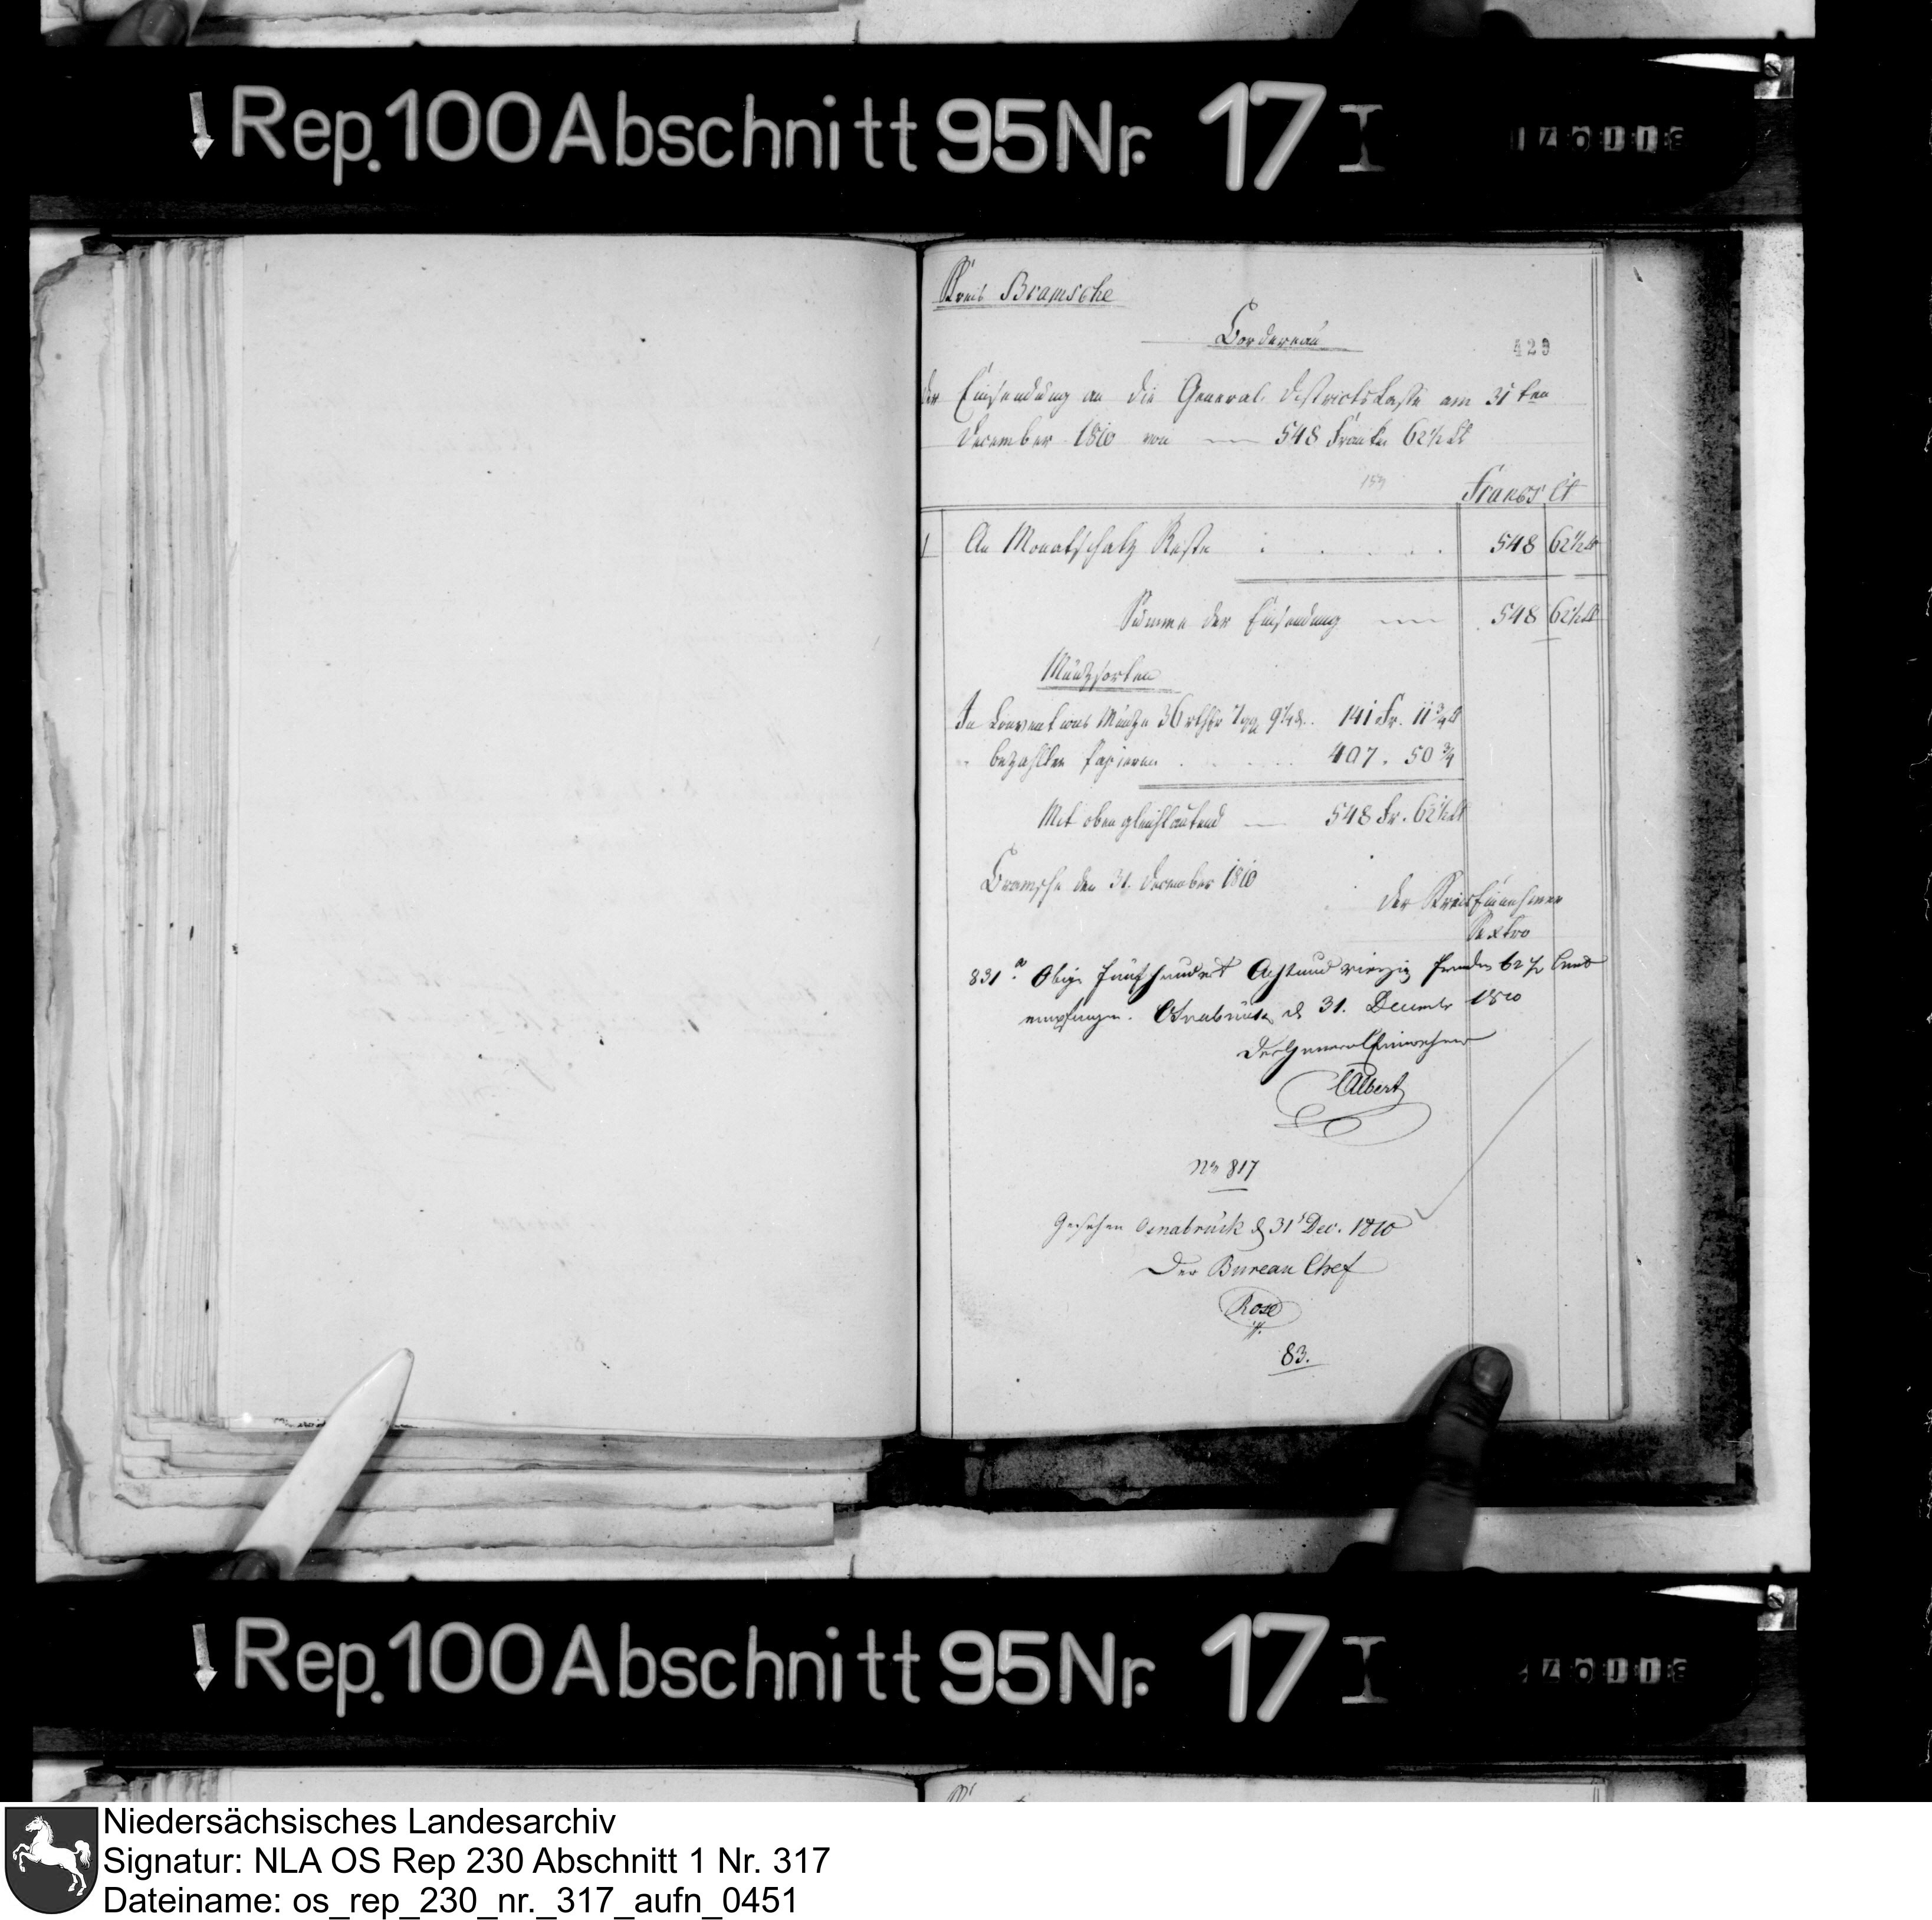 Rep. 100 Abschnitt 95 Nr. 17 I
Kreis Bramsche
Bordereau
429
der Einsendung an die General-Districtskasse am 31ten
December 1810 von 548 Franken 62½ Ct
153
Francs Ct
1 An Monatschatz Reste 548 62½ Ct
Summe der Einsendung 548 62½ Ct
Müntzsorten
In Conventions Müntze 36 rthlr 141 Fr. 11¾ Ct
bezahlten Papieren 407. 50¾
Mit oben gleichlautend 548 Fr. 62½ Ct
Bramsche den 31. December 1810
Der Kreiseinnehmer
Sextro
831 a. Obige Fünfhundert Achtundvierzig Franken 62½ Cent
empfangen. Osnabrück d 31. December 1810
Der General Einnehmer
CAlbert
No 817
Gesehen Osnabrück d 31t Dec. 1810
Der Bureau Chef
Rose
83.
Rep. 100 Abschnitt 95 Nr. 17 I
Niedersächsisches Landesarchiv
Signatur: NLA OS Rep 230 Abschnitt 1 Nr. 317
Dateiname: os_rep_230_nr._317_aufn_0451